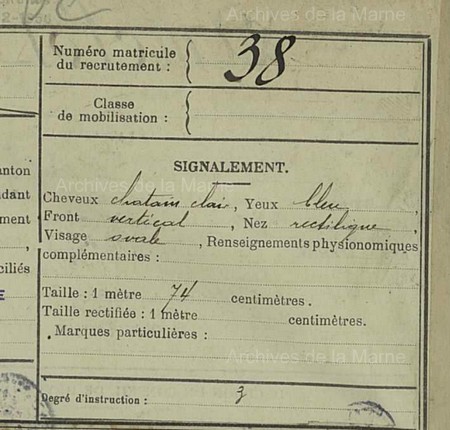 Archives de la Marne
Numéro matricule
du recrutement : 38
Classe
de mobilisation :
Archives de la Marne
SIGNALEMENT.
anton
Cheveux chatain clair, Yeux bleu,
dant
Front vertical, Nez rectiligne,
ment
Visage ovale, Renseignements physionomiques
complémentaires :
ciliés
Taille : 1 mètre 74 centimètres.
Taille rectifiée : 1 mètre centimètres.
Marques particulières :
Archives de la Marne
Degré d'instruction : 3